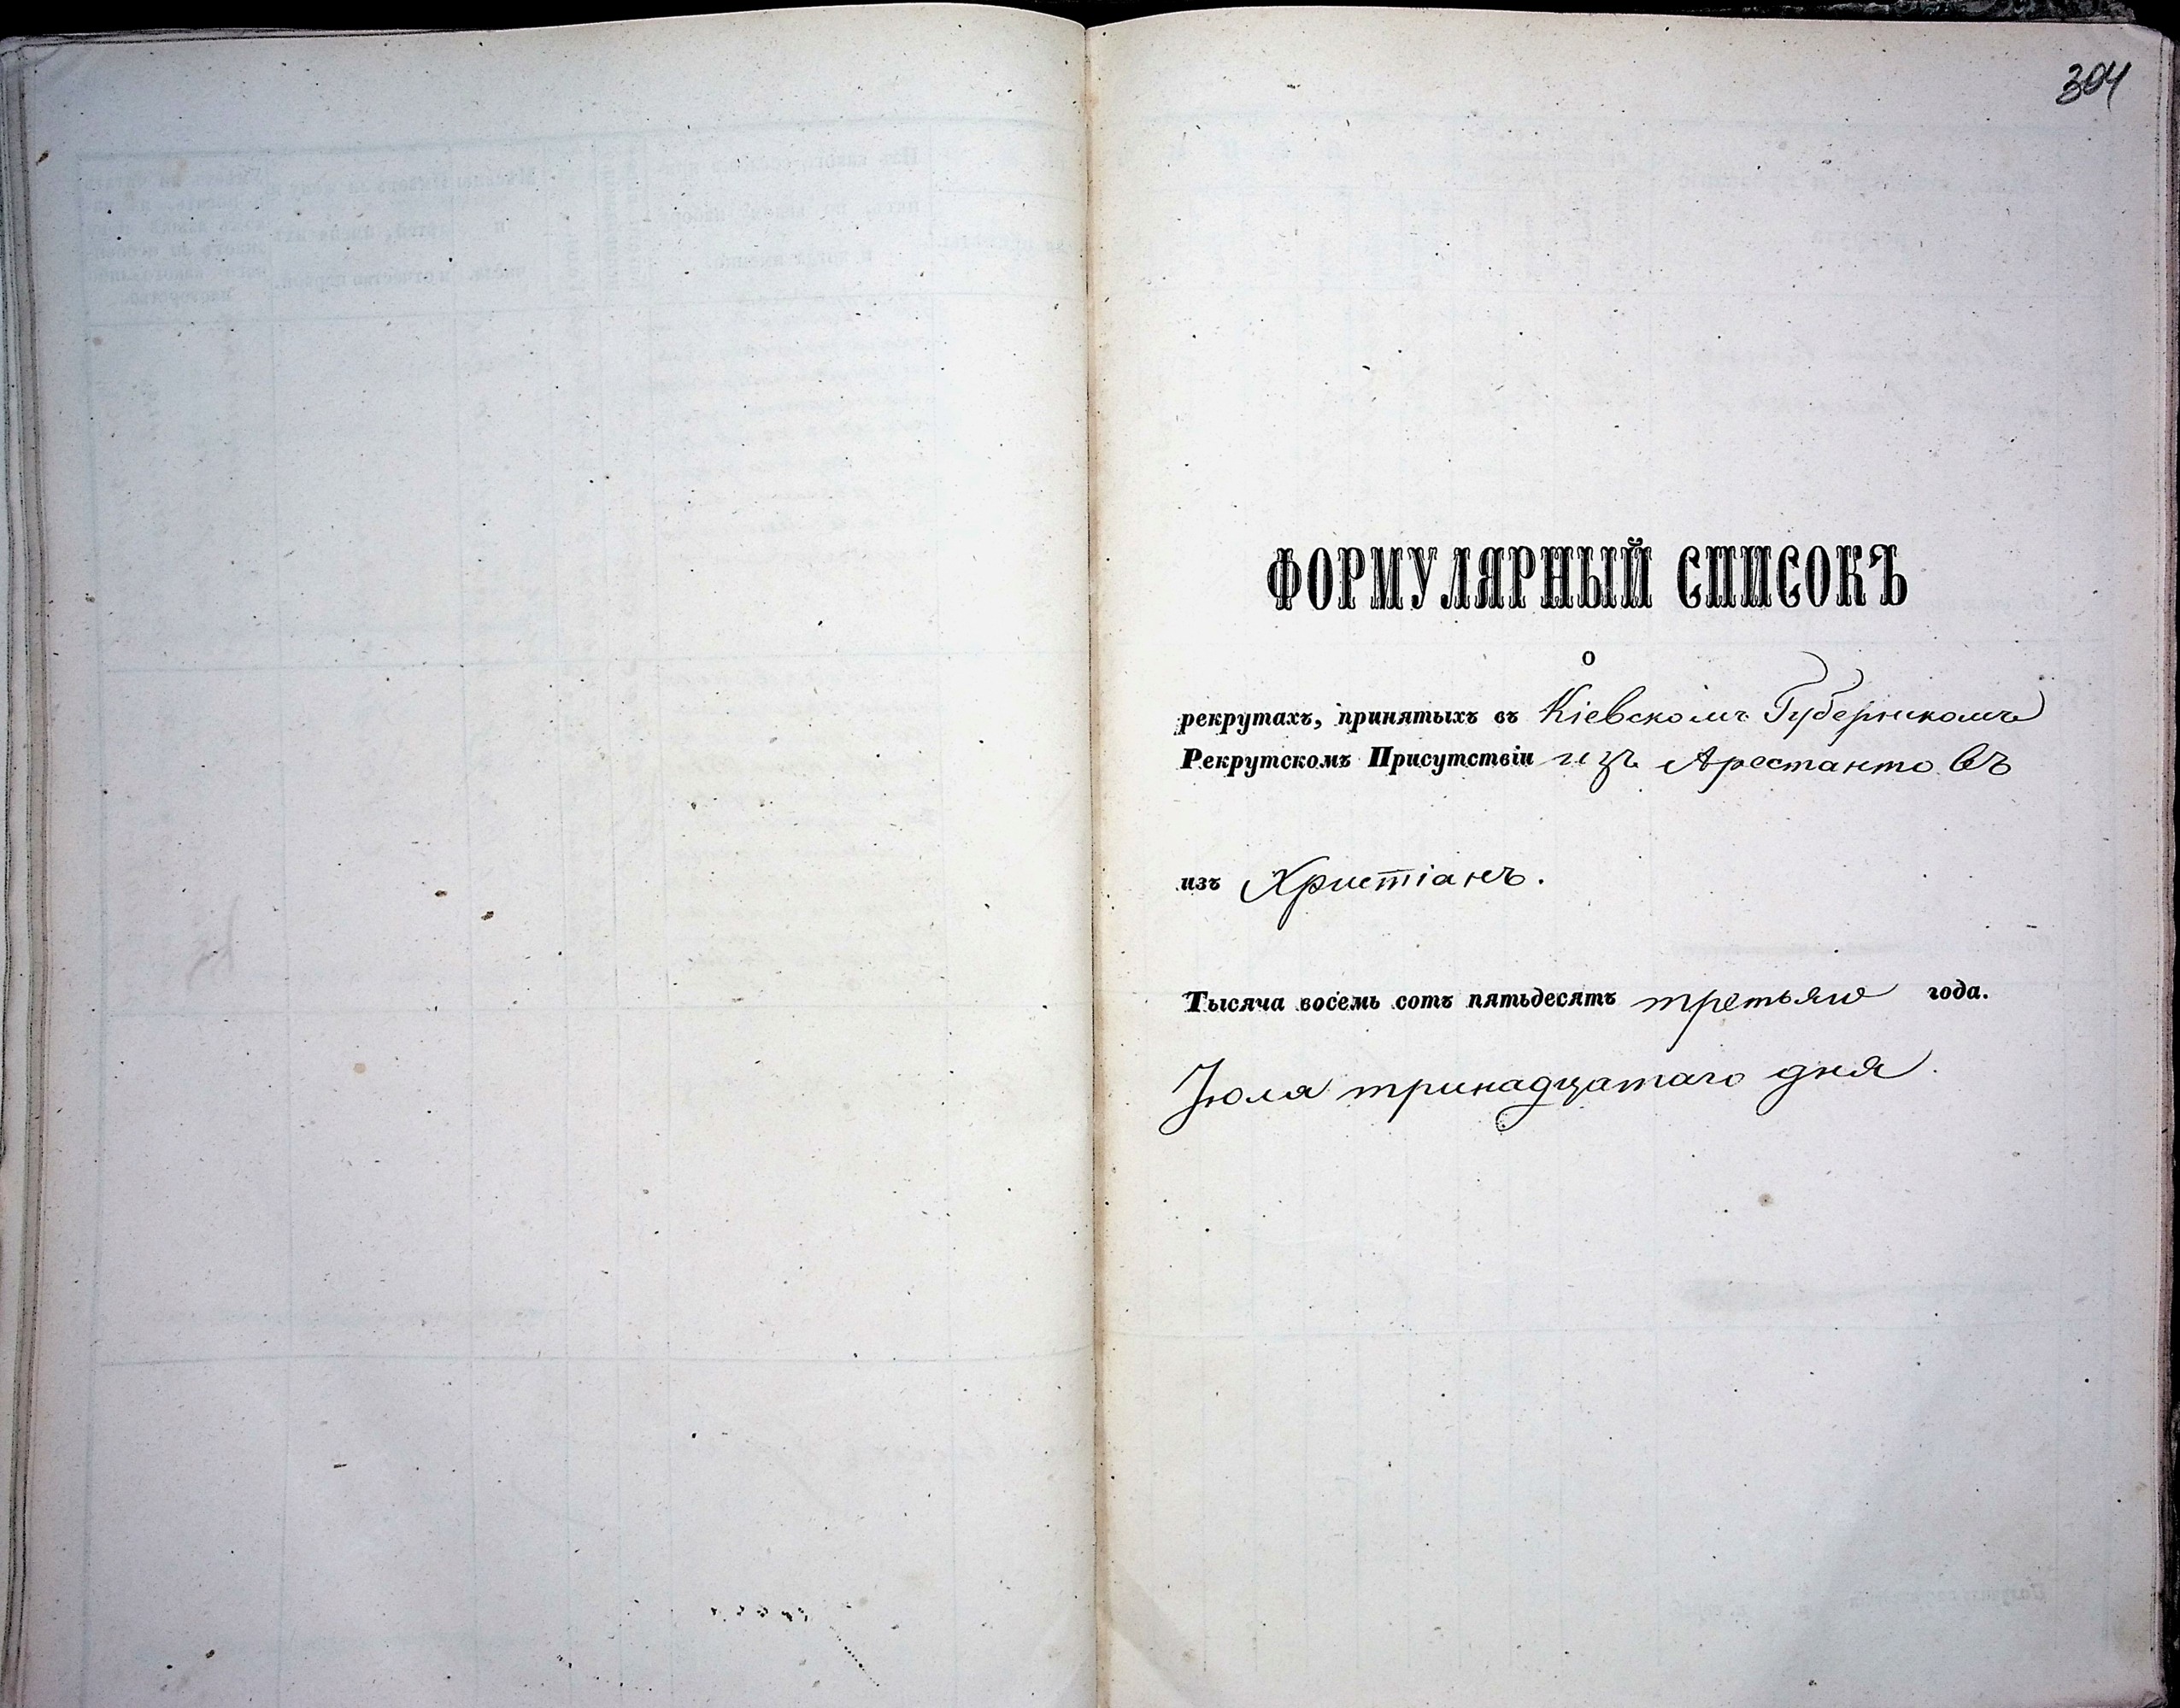 304
ФОРМУЛЯРНЫЙ СПИСОКЪ
о
рекрутахъ, принятыхъ въ Кіевскомъ Губернскомъ
Рекрутскомъ Присутствіи изъ Арестантовъ
изъ Христіанъ.
Тысяча восемь сотъ пятьдесятъ третьяго года.
Іюля тринадцатаго дня.